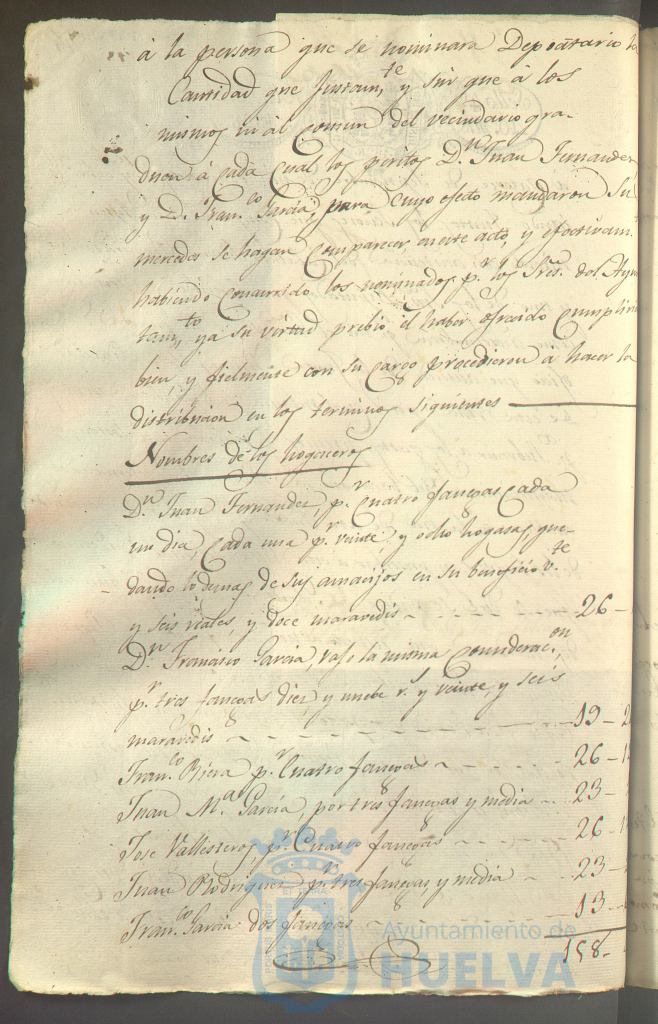 á la persona que se nominara Depositario la
Cantidad que Juntam.te y sin que á los
mismos ni al comun del vecindario gra-
duen á cada Cual los peritos D.n Juan Fernandez
y D. Fran.co Garcia, para cuyo efecto mandaron Su
mercedes se hagan Comparecer en este acto, y efectivam.te
habiendo Concurrido los nominados p.r los Sres. del Ayun
tam.to, y a su virtud prebio el haber ofrecido Cumplir
bien, y fielmente con su Cargo procedieron á hacer la
distribucion en los terminos siguientes
Nombres de los hogaceros
D.n Juan Fernandez, p.r Cuatro fanegas Cada
un dia, Cada una p.r veinte, y ocho hogasas, que-
dando lo demas de sus amacijos en su beneficio v.te
y seis reales, y doce maravedis 26-
D.n Francisco Garcia, vajo la misma Considerac.on
p.r tres fanegas diez, y nuebe r.s y veinte, y seis
maravedis 19-2
Fran.co Riera p.r Cuatro fanegas 26-1
Juan M.a Garcia, por tres fanegas y media 23-
Jose Vallesteros p.r Cuatro fanegas 26-1
Juan Rodriguez p.r tres fanegas y media 23-
Fran.co Garcia dos fanegas 13-
158-
Ayuntamiento de
HUELVA